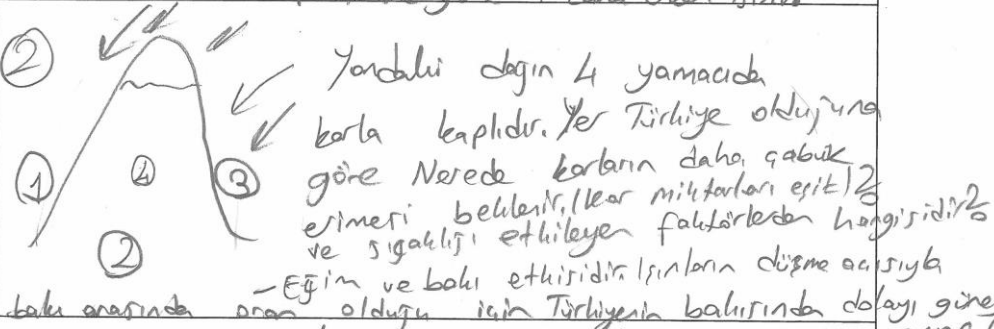 ②
Yandaki dağın 4 yamacıda
karla kaplıdır. Yer Türkiye olduğuna
① ④ ③ göre Nerede karların daha çabuk
erimesi beklenir. (kar miktarları eşit)?
ve sıcaklığı etkileyen faktörlerden hangisidir?
②
- Eğim ve bakı etkisidir. Işınların düşme açısıyla
bakı arasında oran olduğu için Türkiyenin bakısından dolayı güne